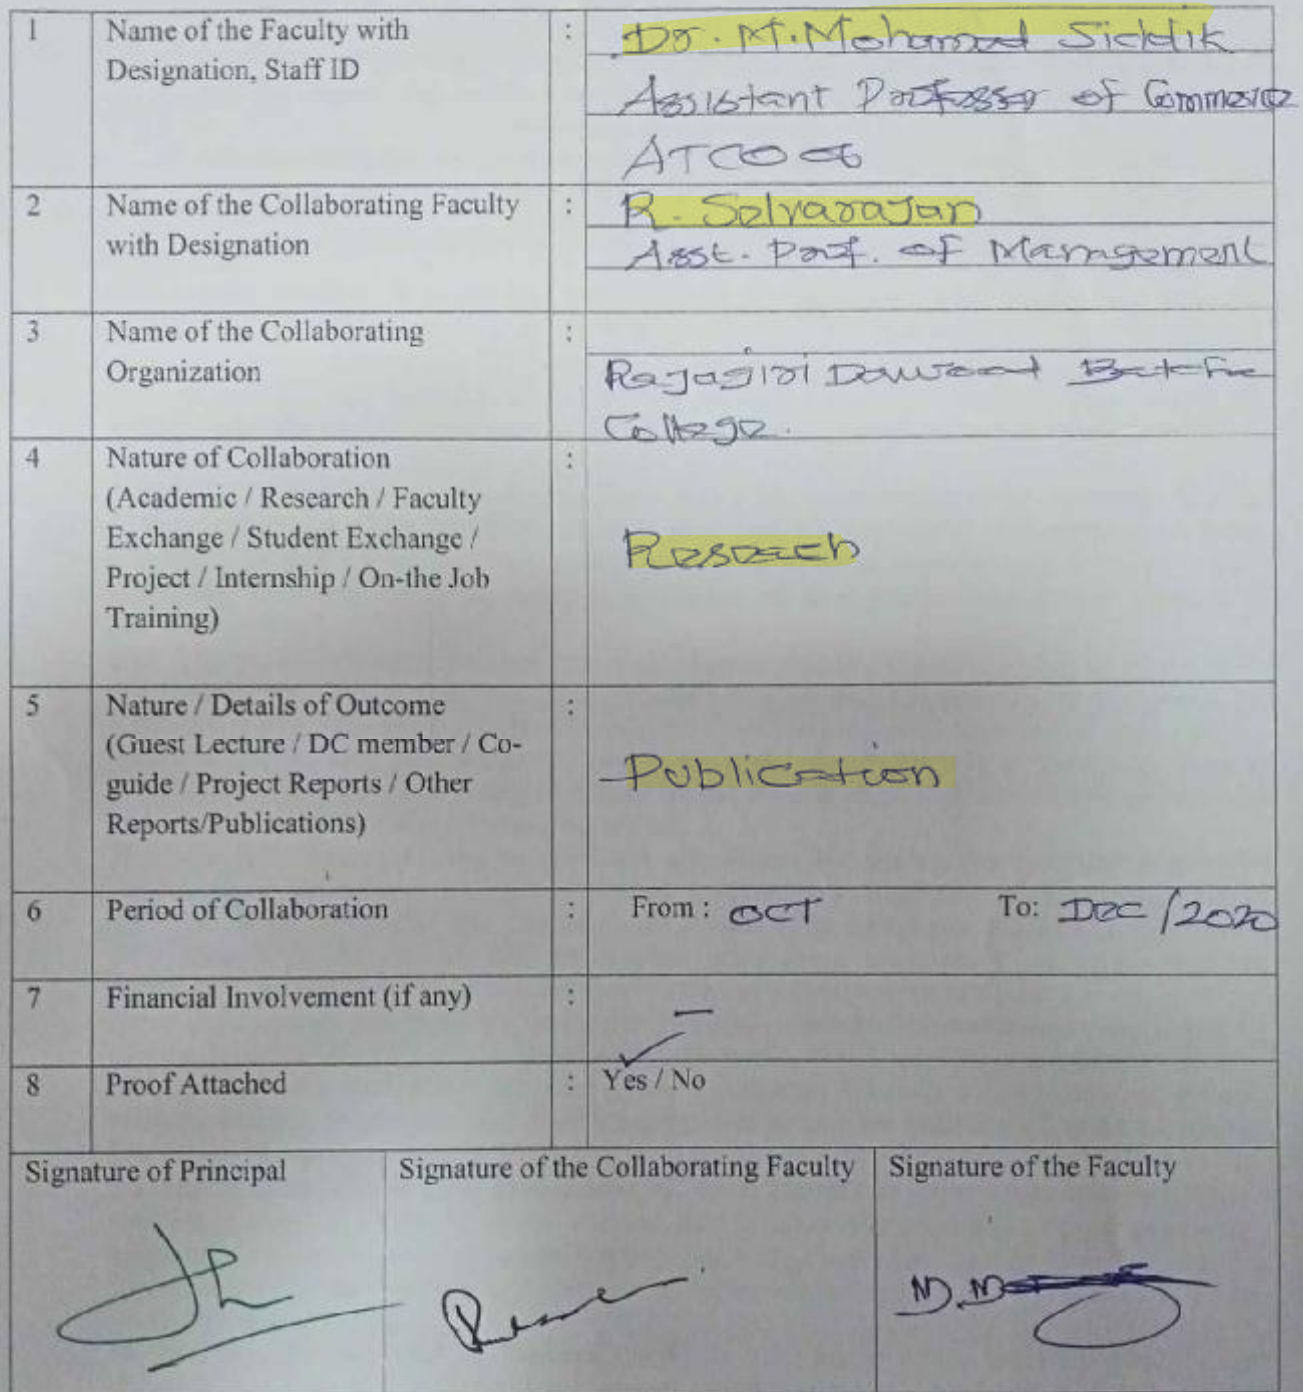 1 Name of the Faculty with : Dr. M. Mohamed Siddik
Designation, Staff ID Assistant Professor of Commerce
ATCO06
2 Name of the Collaborating Faculty : R. Selvarajan
with Designation Asst. Prof. of Management
3 Name of the Collaborating :
Organization Rajagiri Dawood Batcha
College.
4 Nature of Collaboration :
(Academic / Research / Faculty
Exchange / Student Exchange / Reseach
Project / Internship / On-the Job
Training)
5 Nature / Details of Outcome :
(Guest Lecture / DC member / Co-
guide / Project Reports / Other Publication
Reports/Publications)
6 Period of Collaboration : From : OCT To: DEC /2020
7 Financial Involvement (if any) : –
8 Proof Attached : Yes / No
Signature of Principal Signature of the Collaborating Faculty Signature of the Faculty